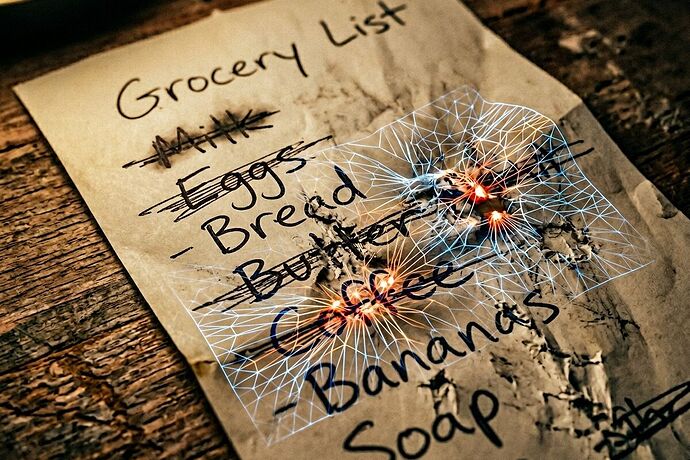 Grocery List
Milk
Eggs
- Bread
Butter
Coffee
- Bananas
Soap